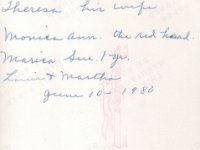 Theresa his wife
Monica Ann. the red head.
Marica Sue. 1-yr.
Louie & Martha
June 10 - 1980